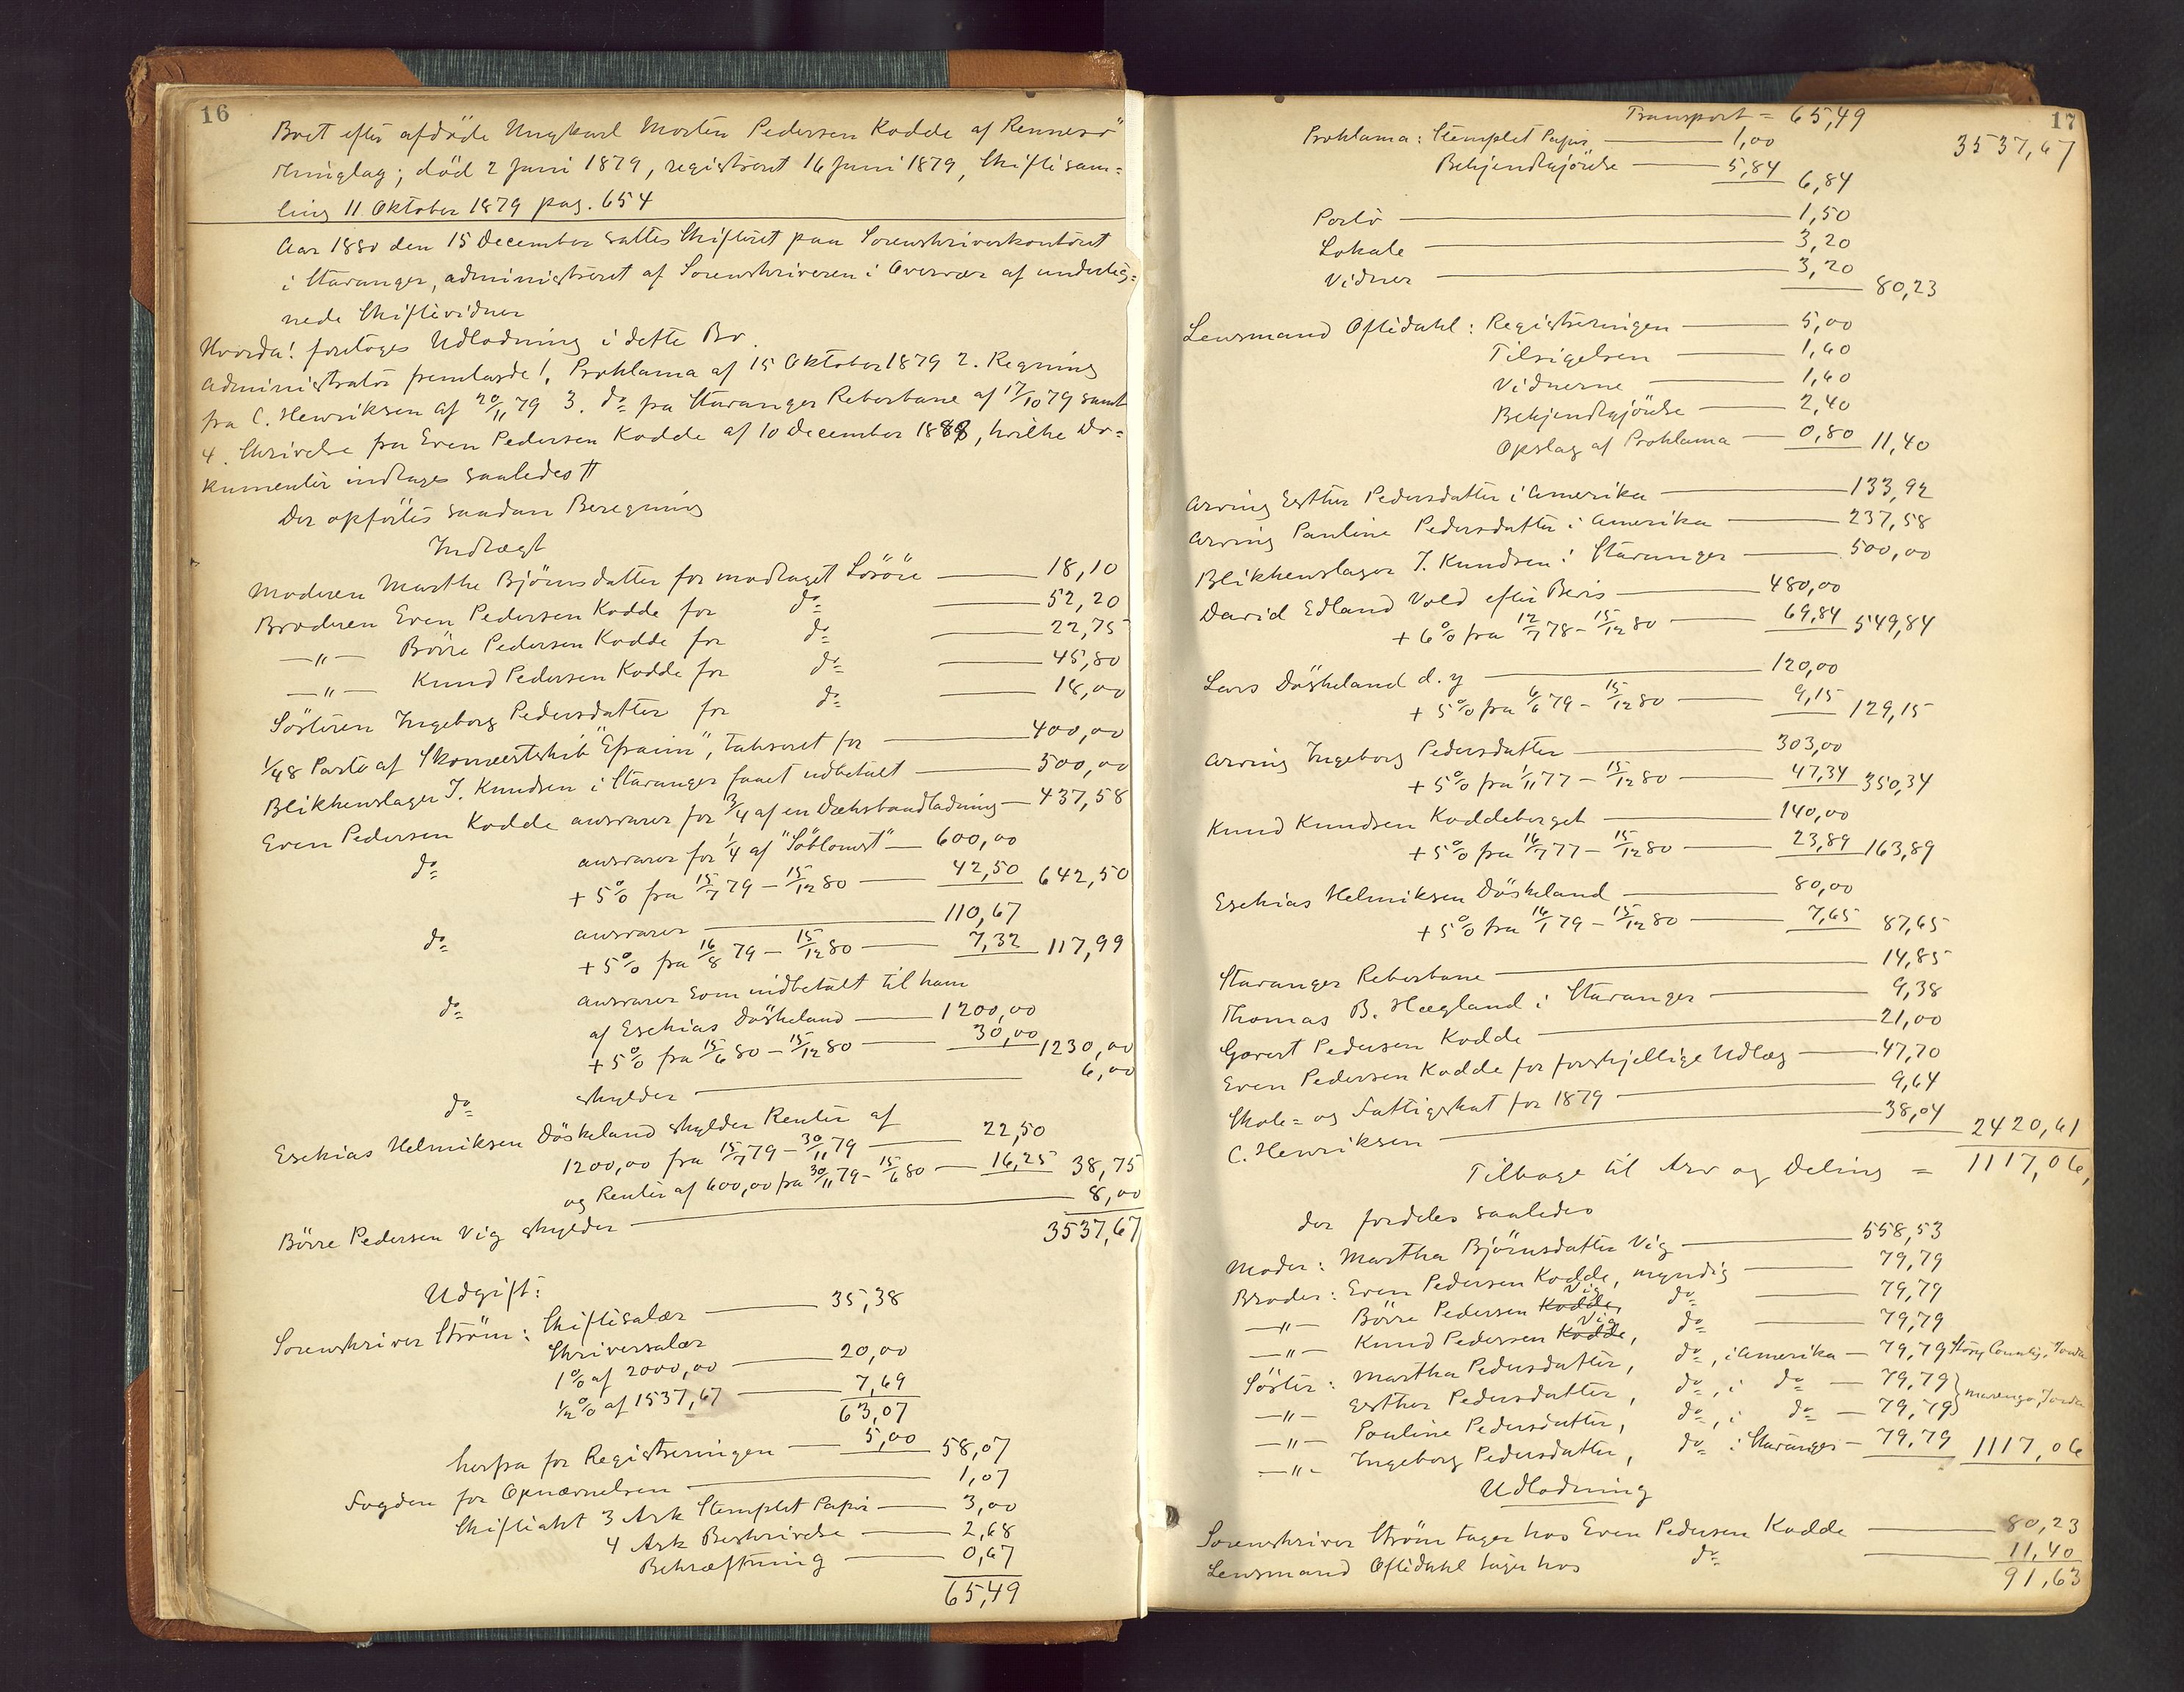 16
Boet efter afdöde Ungkarl Morten Pedersen Kodde af Rennesö
Thinglag; död 2 Juni 1879, registreret 16 Juni 1879, Skiftesam=
ling 11 Oktober 1879 pag. 654
Aar 1880 den 15 December sattes Skifteret paa Sorenskriverkontoret
i Stavanger, administreret af Sorenskriveren i Overvær af underteg=
nede Skiftevidner
Hvorda! foretoges Udlodning i dette Bo.
Administrator fremlagde 1. Proklama af 15 Oktober 1879 2. Regning
fra C. Henriksen af 20/11 79 3. do fra Stavanger Reberbane af 17/10 79 samt
4. Skrivelse fra Even Pedersen Kodde af 10 December 1880, hvilke Do=
kumenter indtages saaledes #
Der opførtes saadan Beregning
Indtægt
Moderen Marthe Björnsdatter for modtaget Lösöre — 18,10
Broderen Even Pedersen Kodde for do — 52,20
—"— Börre Pedersen Kodde for do — 22,75
—"— Knud Pedersen Kodde for do — 45,80
Sösteren Ingeborg Pedersdatter for do — 18,00
1/48 Part af Skonnertskib "Efraim", taxeret for — 400,00
Blikkenslager J. Knudsen i Stavanger faaet udbetalt — 500,00
Even Pedersen Kodde ansvarer for 3/4 af en Dæksbaadladning — 437,58
do ansvarer for 1/4 af "Söblomst" — 600,00
+ 5% fra 15/7 79 – 15/12 80 — 42,50 642,50
do ansvarer — 110,67
+ 5% fra 16/8 79 – 15/12 80 — 7,32 117,99
do ansvarer som indbetalt til ham
af Esekias Döskeland — 1200,00
+ 5% fra 15/6 80 – 15/12 80 — 30,00 1230,00
do skylder — 6,00
Esekias Helmiksen Döskeland skylder Renter af
1200,00 fra 15/7 79 – 30/11 79 — 22,50
og Renter af 600,00 fra 30/11 79 – 15/6 80 — 16,25 38,75
Börre Pedersen Vig skylder — 8,00
3537,67
Udgift:
Sorenskriver Ström: Skiftesalær — 35,38
Skriversalær
1% af 2000,00 — 20,00
1/2% af 1537,67 — 7,69
63,07
herfra for Registreringen — 5,00 58,07
Fogden for Opnævnelsen — 1,07
Skifteakt 3 Ark Stemplet Papir — 3,00
4 Ark Beskrivelse — 2,68
Bekræftning — 0,67
65,49
17
Transport = 65,49
3537,67
Proklama: Stemplet Papir — 1,00
Bekjendtgjörelse — 5,84 6,84
Porto — 1,50
Lokale — 3,20
Vidner — 3,20 80,23
Lensmand Oftedahl: Registreringen — 5,00
Tilsigelsen — 1,60
Vidnerne — 1,60
Bekjendtgjörelse — 2,40
Opslag af Proklama — 0,80 11,40
Arving Esther Pedersdatter i Amerika — 133,92
Arving Pauline Pedersdatter i Amerika — 237,58
Blikkenslager J. Knudsen i Stavanger — 500,00
David Edland Vold efter Bevis — 480,00
+ 6% fra 12/7 78 – 15/12 80 — 69,84 549,84
Lars Döskeland d. y — 120,00
+ 5% fra 6/6 79 – 15/12 80 — 9,15 129,15
Arving Ingeborg Pedersdatter — 303,00
+ 5% fra 1/11 77 – 15/12 80 — 47,34 350,34
Knud Knudsen Koddeberget — 140,00
+ 5% fra 16/7 77 – 15/12 80 — 23,89 163,89
Esekias Helmiksen Döskeland — 80,00
+ 5% fra 16/1 79 – 15/12 80 — 7,65 87,65
Stavanger Reberbane — 14,85
Thomas B. Hægland i Stavanger — 9,38
Govert Pedersen Kodde — 21,00
Even Pedersen Kodde for forskjellige Udlæg — 47,70
Skole= og Fattigskat for 1879 — 9,64
C. Henriksen — 38,04 2420,61
Tilbage til Arv og Deling = 1117,06,
der fordeles saaledes
Moder: Martha Björnsdatter Vig — 558,53
Broder: Even Pedersen Kodde, myndig — 79,79
—"— Börre Pedersen Kodde, Vig do — 79,79
—"— Knud Pedersen Kodde, Vig do — 79,79
Söster: Martha Pedersdatter, do, i Amerika — 79,79 Story County, Iowa
—"— Esther Pedersdatter, do, i do — 79,79
—"— Pauline Pedersdatter, do, i do — 79,79 } Marengo, Iowa
—"— Ingeborg Pedersdatter, do i Stavanger — 79,79 1117,06
Udlodning
Sorenskriver Ström tager hos Even Pedersen Kodde — 80,23
Lensmand Oftedahl tager hos do — 11,40
91,63